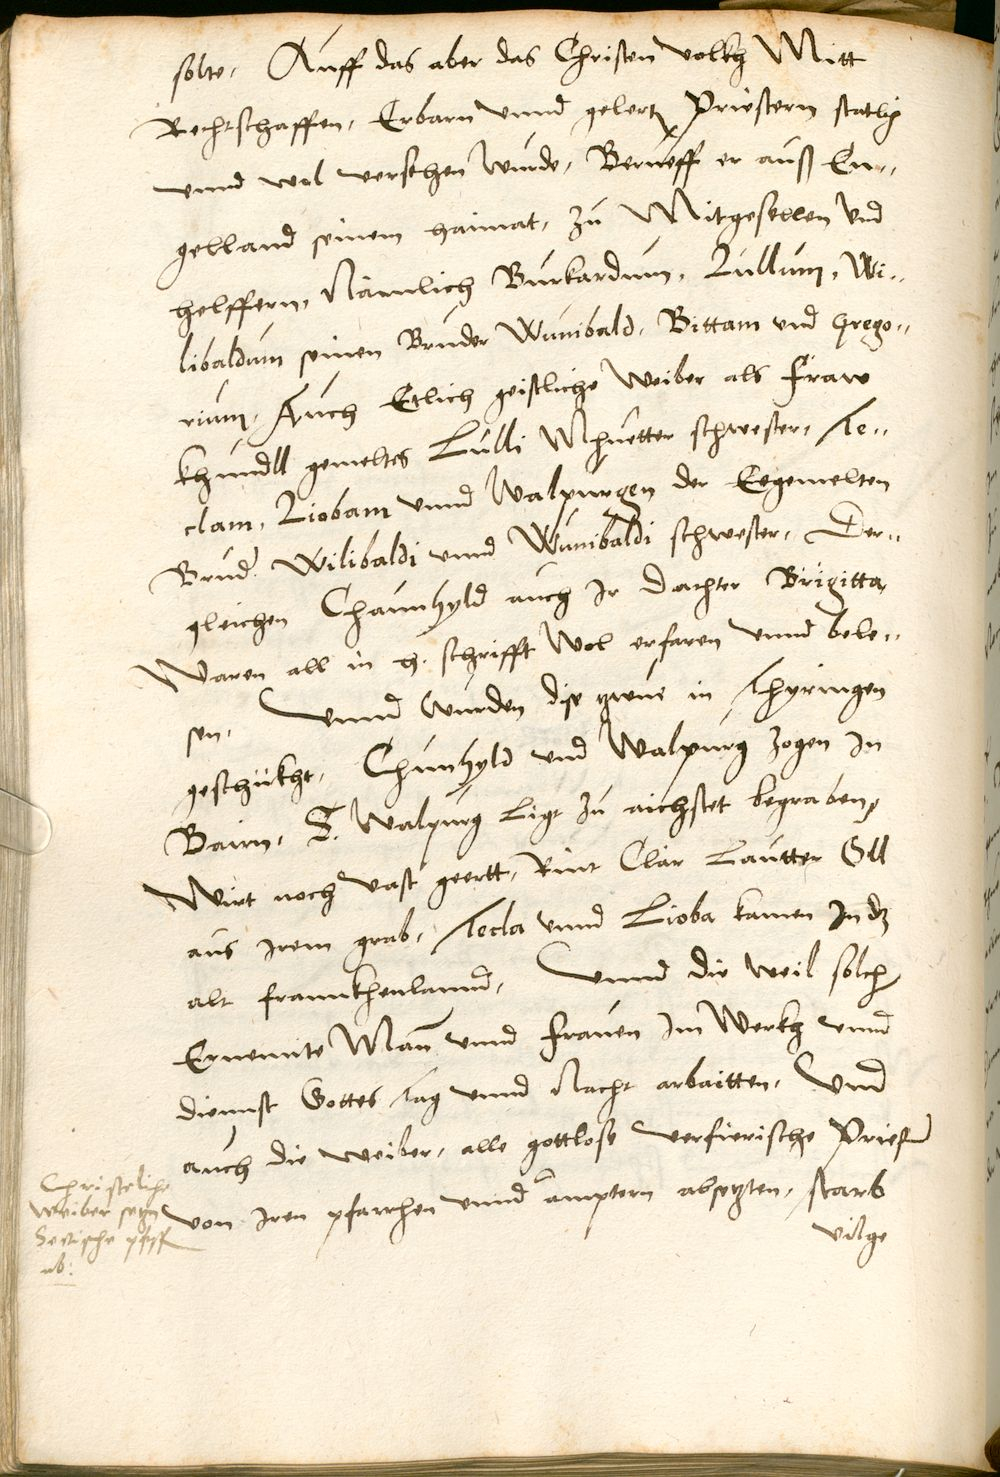 solte, Auff das aber das Christen volkh Mitt
Rechtschaffen, Erbarn unnd gelertz Priestern statlich
unnd wol versehen wurde, Berueff er auß En,,
gelland seinem haimat, zu Mitgesellen und
helffern, Nämlich Burkardum, Lullum, Wi,,
libaldum seinen Bruder Wunibald, Bittam und Grego,,
rium, Auch Etlich geistliche Weiber als fraw
khundll gemeltes Lulli Muetter schwester, Te,,
clam, Liobam unnd Walpurgen der Eegemelten
Brud. Wilibaldi unnd Wunibaldi schwester, Der,,
gleichen Chunhyld auch Ir dochter Brigitta
Waren all in h. schrifft Wol erfaren unnd bele,,
sen, Unnd wurden dise zwue in Thyringen
geschükht, Chunhyld und Walpurg zogen In
Bairn, S. Walpurg Ligt zu aichstet begraben,
Wirt noch vast geertt, Rint Clar Lautter Öll
aus Irem grab, Tecla unnd Lioba kamen In dz
alt frannkhenlannd, Unnd die weil solch
Ernennte Man unnd frauen Im Werkh unnd
diennst Gottes tag unnd Nacht arbaitten, Und
auch die weiber, alle gottlose verfierische Priester
von Iren pfarrhen unnd ämptern absetzten, starb
vilge
Christeliche
Weiber sezn
pfaff
ab: